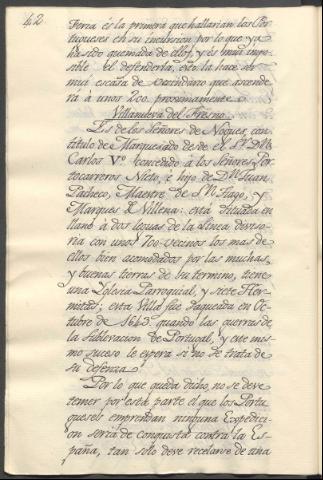 42
Forza es la primera que hallarian los Por
tugueses en su incursion por lo que ya
ha sido quemada de ellos, y es mui impo
sible el defenderla, esto la hace es
mui escasa de vecindario que ascende
rá á unos 200. proximamente.
Villanueva del Fresno.
Es de los Señores de Nogues, con
titulo de Marquesado desde el Sr. Dn.
Carlos Vo. concedido á los Señores Por
tocarreros Nieto, é hijo de Dn. Juan
Pacheco, Maestre de Sn. Tiago, y
Marques de Villena: está situada en
llano á dos leguas de la Linea diviso
ria con unos 700. vecinos los mas de
ellos bien acomodados por las muchas,
y buenas tierras de su termino, tiene
una Yglesia Parroquial, y siete Her
mitas; esta Villa fue saqueada en Oc
tubre de 1643. quando las guerras de
la sublevacion de Portugal, y este mis
mo suceso le espera si no se trata de
su defensa.
Por lo que queda dicho, no se deve
temer por esta parte el que los Portu
gueses emprendan ninguna Expedici
on seria de conquista contra la Es
paña, tan solo deve recelarse de una